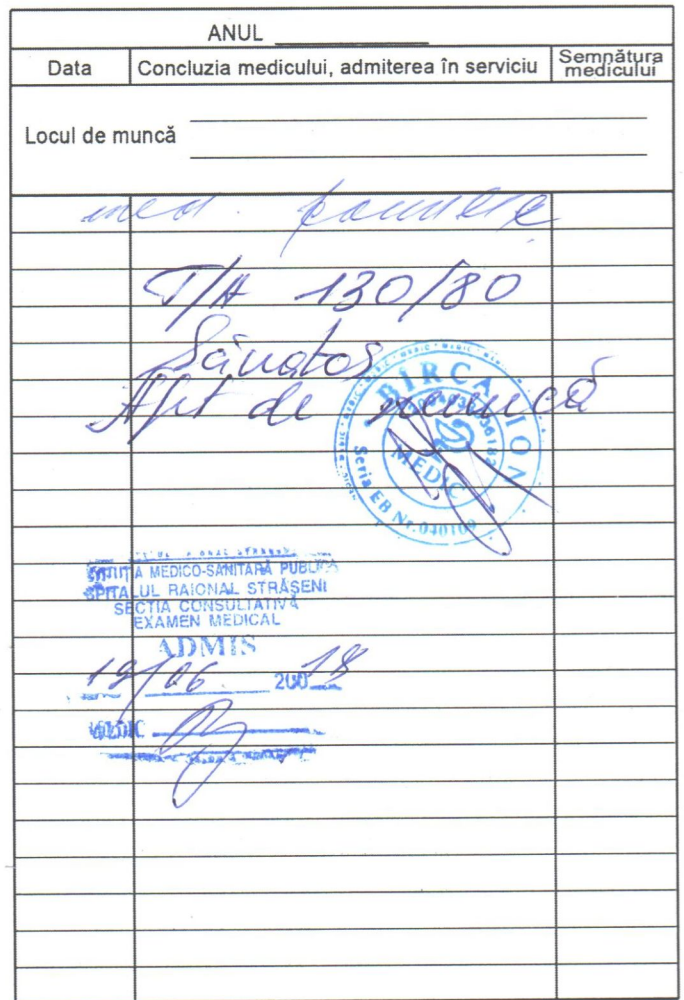 ANUL
Data Concluzia medicului, admiterea în serviciu Semnătura medicului
Locul de muncă
med familie
T/A 130/80
Sănatos
Apt de muncă
BÎRCA ION
MEDIC
Seria EB Nr.040109
MEDICO-SANITARĂ PUBLICĂ
SPITALUL RAIONAL STRĂŞENI
SECTIA CONSULTATIVĂ
EXAMEN MEDICAL
ADMIS
19/06 200 18
MEDIC